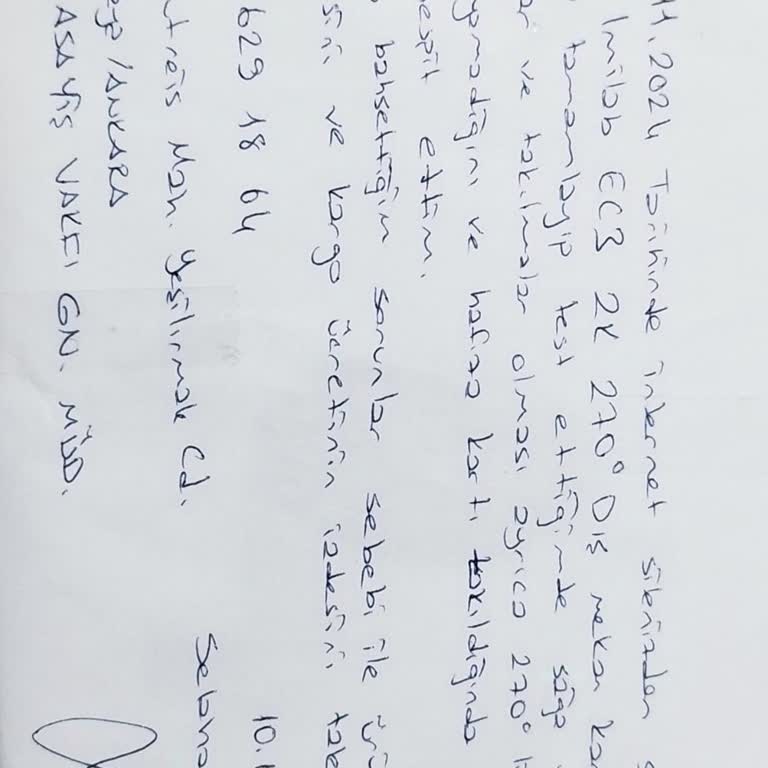 11.2024 Tarihinde internet sitenizden
Imilab EC3 2K 270° Dış mekan
tamamlayıp test ettiğimde sağa
ar ve takılmalar olması ayrıca 270°
ymadığını ve hafıza kartı takıldığında
espit ettim.
bahsettiğim sorunlar sebebi ile
ve kargo ücretinin iadesini
629 18 64
10.1
utreis Mah. Yeşilırmak Cd.
/ANKARA
ASAYİŞ VAKFI GN. MÜD.